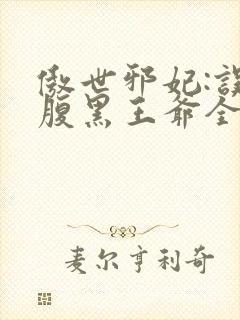 傲世邪妃:误
腹黑王爷全
麦尔亨利奇